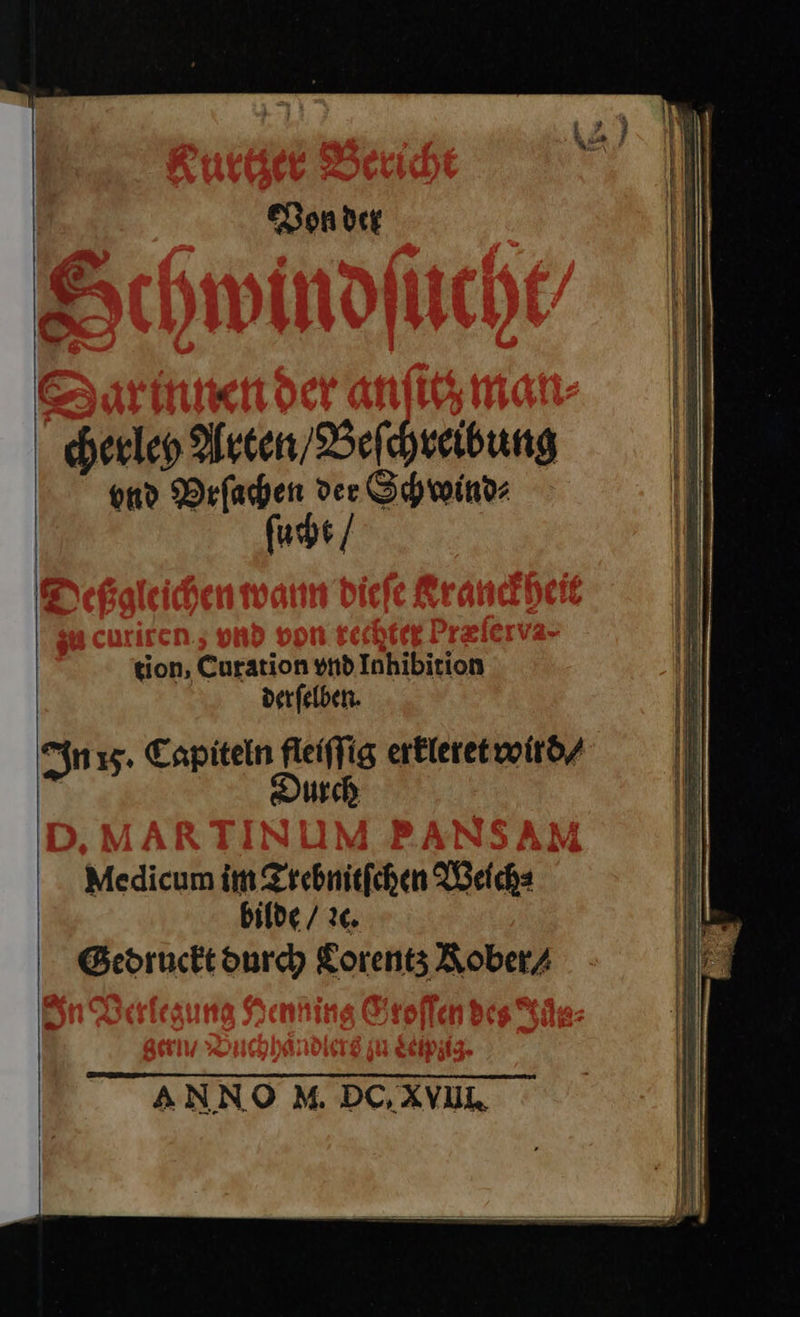 (2)
Kurtzer Bericht
Von der
Schwindſucht/
Darinnen der anſitz man⸗
cherley Arten/Beſchreibung
vnd Vrſachen der Schwind⸗
ſucht /
Deßgleichen wann dieſe Kranckheit
zu curiren, vnd von rechter Præſerva-
tion, Curation vnd Inhibition
derſelben.
In 15. Capiteln fleiſſig erkleret wird/
Durch
D. MARTINUM PANSAM
Medicum im Trebnitſchen Weich⸗
bilde / ꝛc.
Gedruckt durch Lorentz Kober/
In Verlegung Henning Groſſen des Jün⸗
gern/ Buchhändlers zu Leipzig.
ANNO M. DC. XVIII.